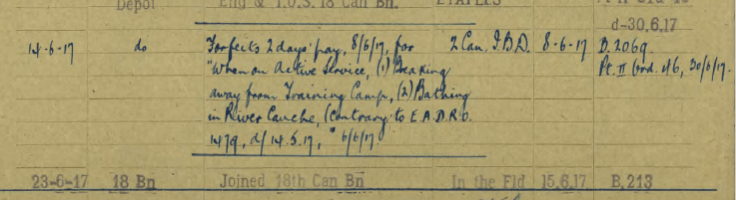 Depot Eng & T.O.S. 18 Can Bn. ETAPLES
d-30.6.17
14-6-17 do Forfeits 2 days' pay, 8/6/17, for 2 Can. I.B.D. 8-6-17 B.2069
"When on Active Service, (1) Breaking Pt. II Ord. 46, 30/6/17.
away from Training Camp, (2) Bathing
in River Canche, (contrary to E.A.D.R.O.
1479, d/ 14.5.17, " 6/6/17
23-6-17 18 Bn Joined 18th Can Bn In the Fld 15.6.17 B,213